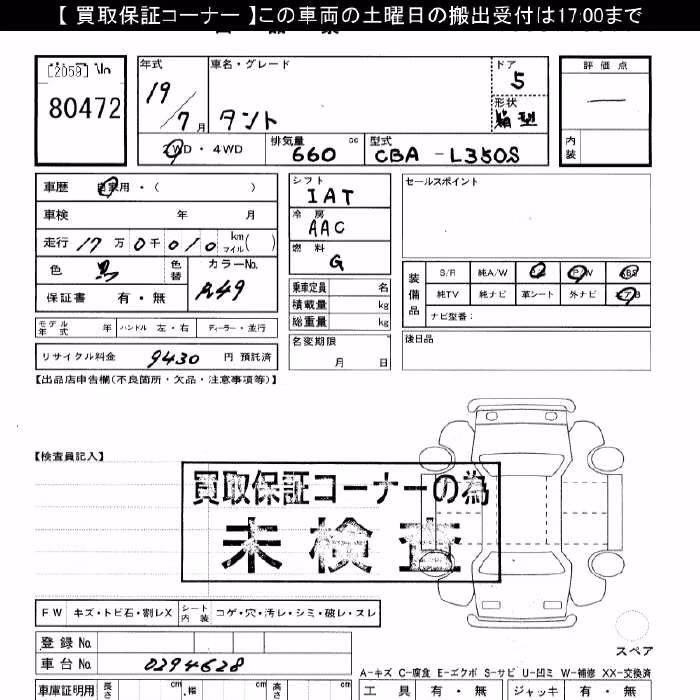 【 買取保証コーナー 】この車両の土曜日の搬出受付は17:00まで
[2059] No
80472
年式
19/7月
車名・グレード
タント
ドア
5
形状
箱型
評価点
—
内装
2WD・4WD
排気量
660 cc
型式
CBA-L350S
車歴 自家用・( )
車検 年 月
走行 17万0千010 km マイル( )
色 黒 色替
カラーNo.
保証書 有・無
モデル年式 年 ハンドル 左・右 ディーラー・並行
リサイクル料金 9430 円 預託済
シフト
IAT
冷房
AAC
燃料
G
乗車定員 名
積載量 kg
総重量 kg
名変期限
月 日
セールスポイント
装備品
S/R 純A/W P/S P/W ABS
純TV 純ナビ 革シート 外ナビ エアB
ナビ型番:
後日品
【出品店申告欄(不良箇所・欠品・注意事項等)】
【検査員記入】
買取保証コーナーの為
未検査
FW キズ・トビ石・割レX シート内装 コゲ・穴・汚レ・シミ・破レ・スレ
登録 No.
車台 No. 0294628
スペア
A-キズ C-腐食 E-エクボ S-サビ U-凹ミ W-補修 XX-交換済
車庫証明用 長さ cm 幅 cm 高さ cm
工具 有・無 ジャッキ 有・無